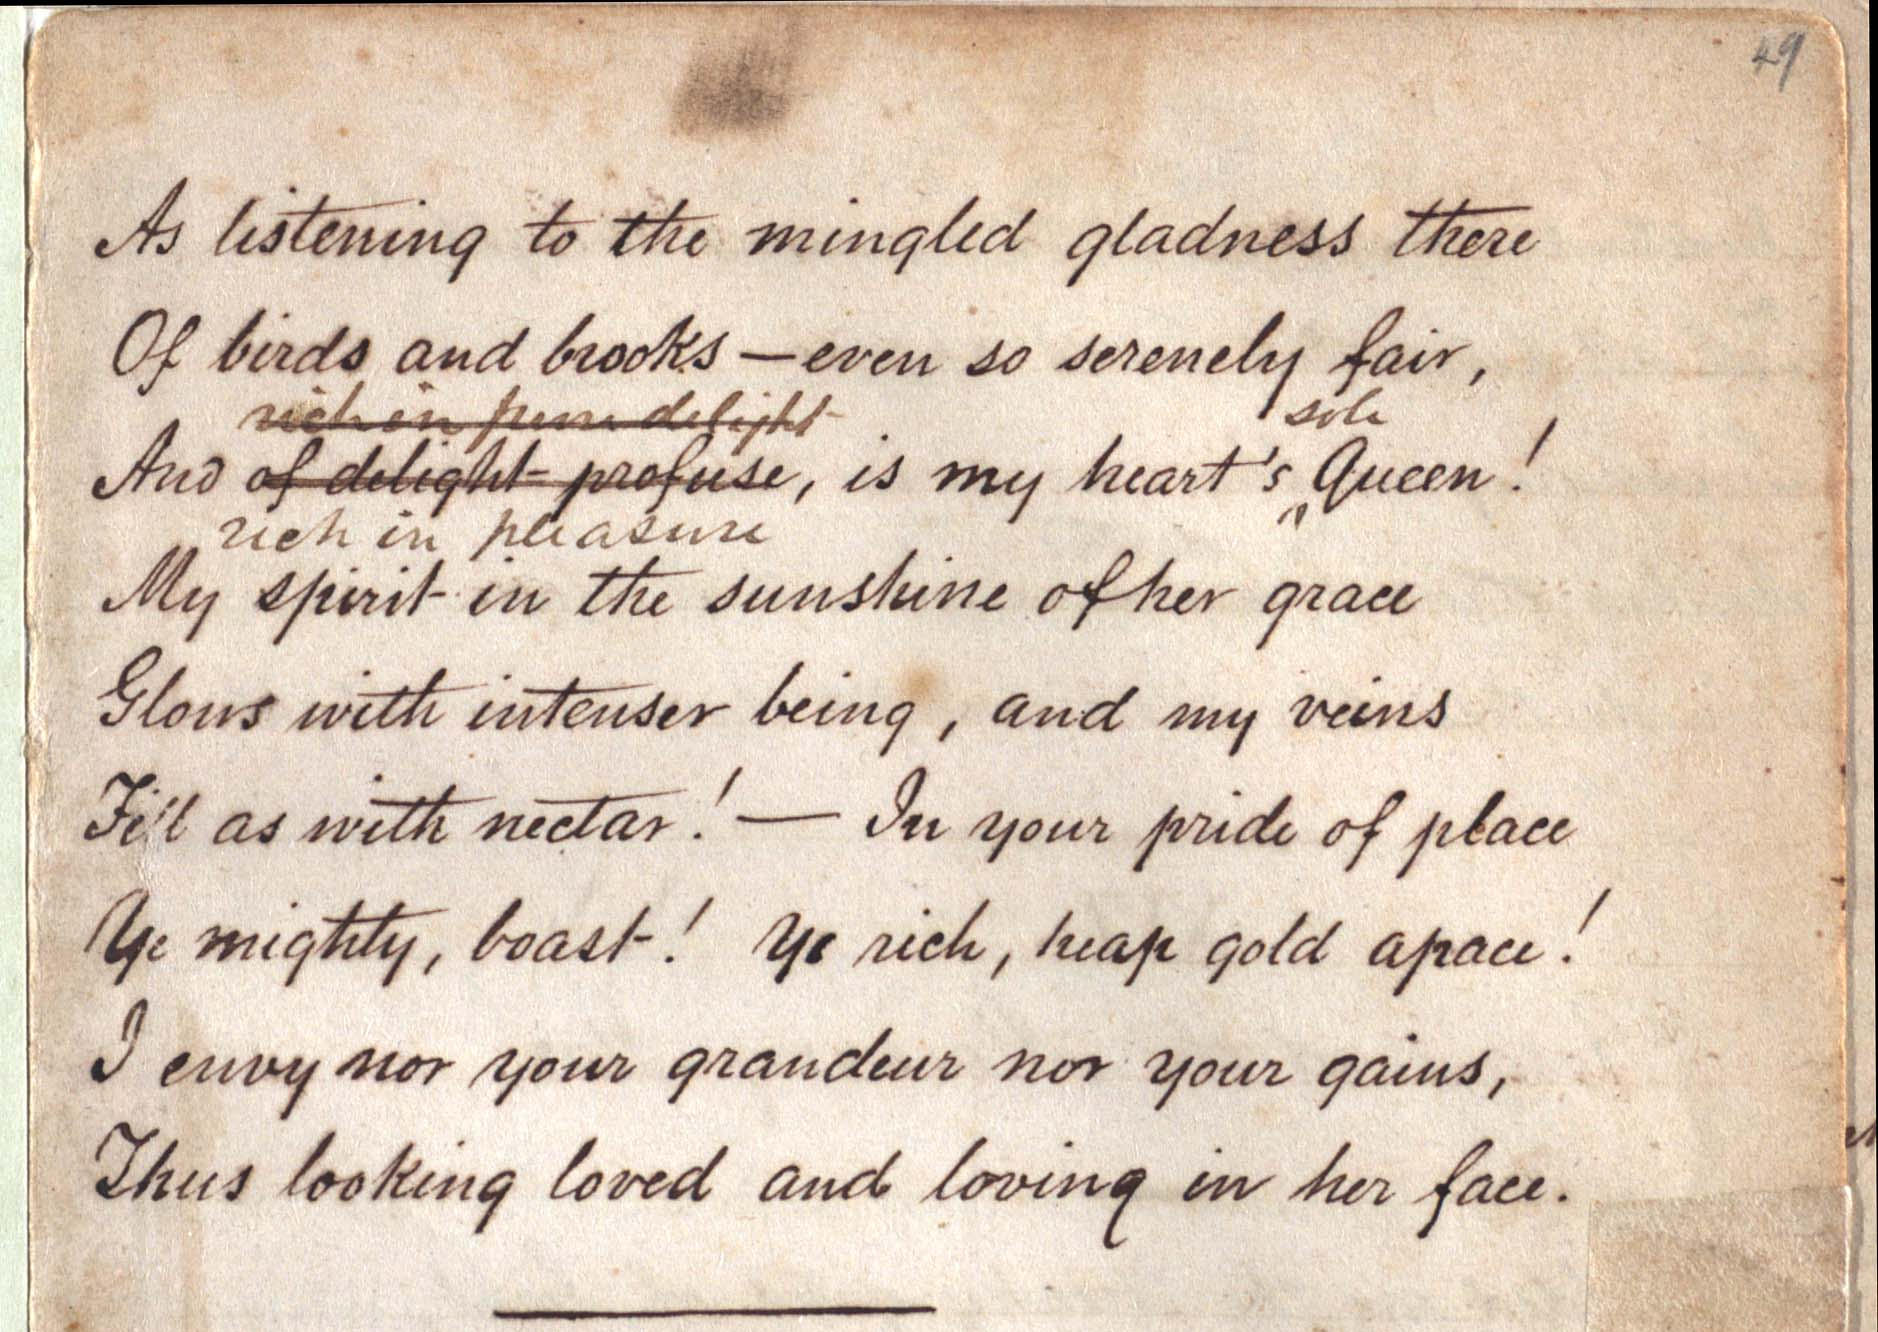 49
As listening to the mingled gladness there
Of birds and brooks — even so serenely fair,
rich in pure delight
sole
And of delight profuse, is my heart's Queen!
rich in pleasure
My spirit in the sunshine of her grace
Glows with intenser being, and my veins
Fill as with nectar! — In your pride of place
Ye mighty, boast! Ye rich, heap gold apace!
I envy nor your grandeur nor your gains,
Thus looking loved and loving in her face.